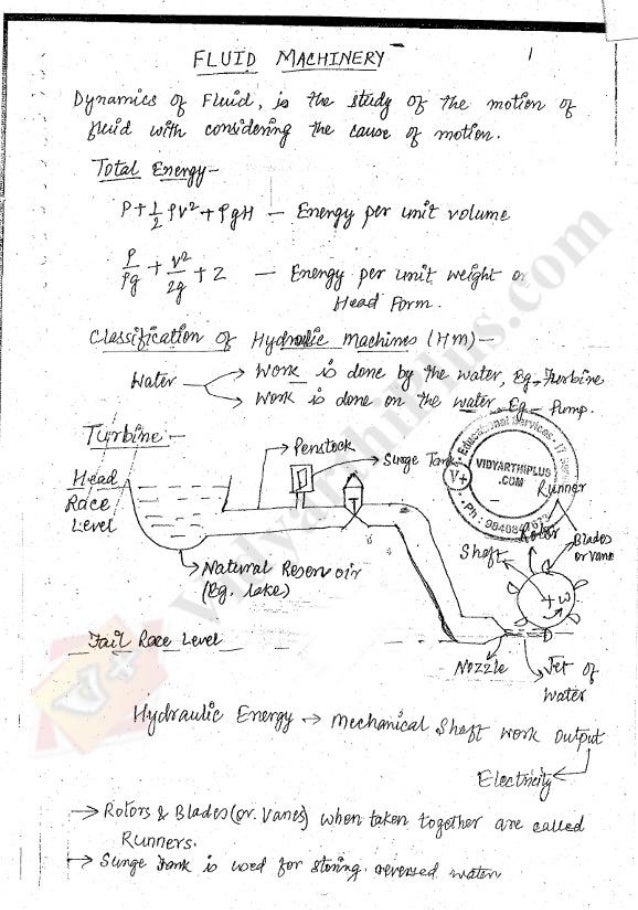 FLUID MACHINERY
1
Dynamics of Fluid, is the study of the motion of
fluid with considering the cause of motion.
Total Energy-
P+1/2 ρv²+ρgH — Energy per unit volume
P/ρg + v²/2g + Z — Energy per unit weight or
Head Form.
Classification of Hydraulic machines (HM)-
Water → Work is done by the water, Eg-Turbine
→ Work is done on the water Eg- Pump.
Turbine-
Penstock
Surge Tank
Educational Services - 17
VIDYARTHIPLUS
.COM
V+
Ph :
Head
Race
Level
Runner
Rotor
Blades
or vane
Shaft
T
+ω
→ Natural Reservoir
(Eg. lake)
Tail Race Level
Nozzle
Jet of
water
Hydraulic Energy → Mechanical Shaft work output
Electricity
→ Rotors & Blades (or. Vanes) when taken together are called
Runners.
→ Surge Tank is used for storing reversed water
Vidyarthiplus.com
V+